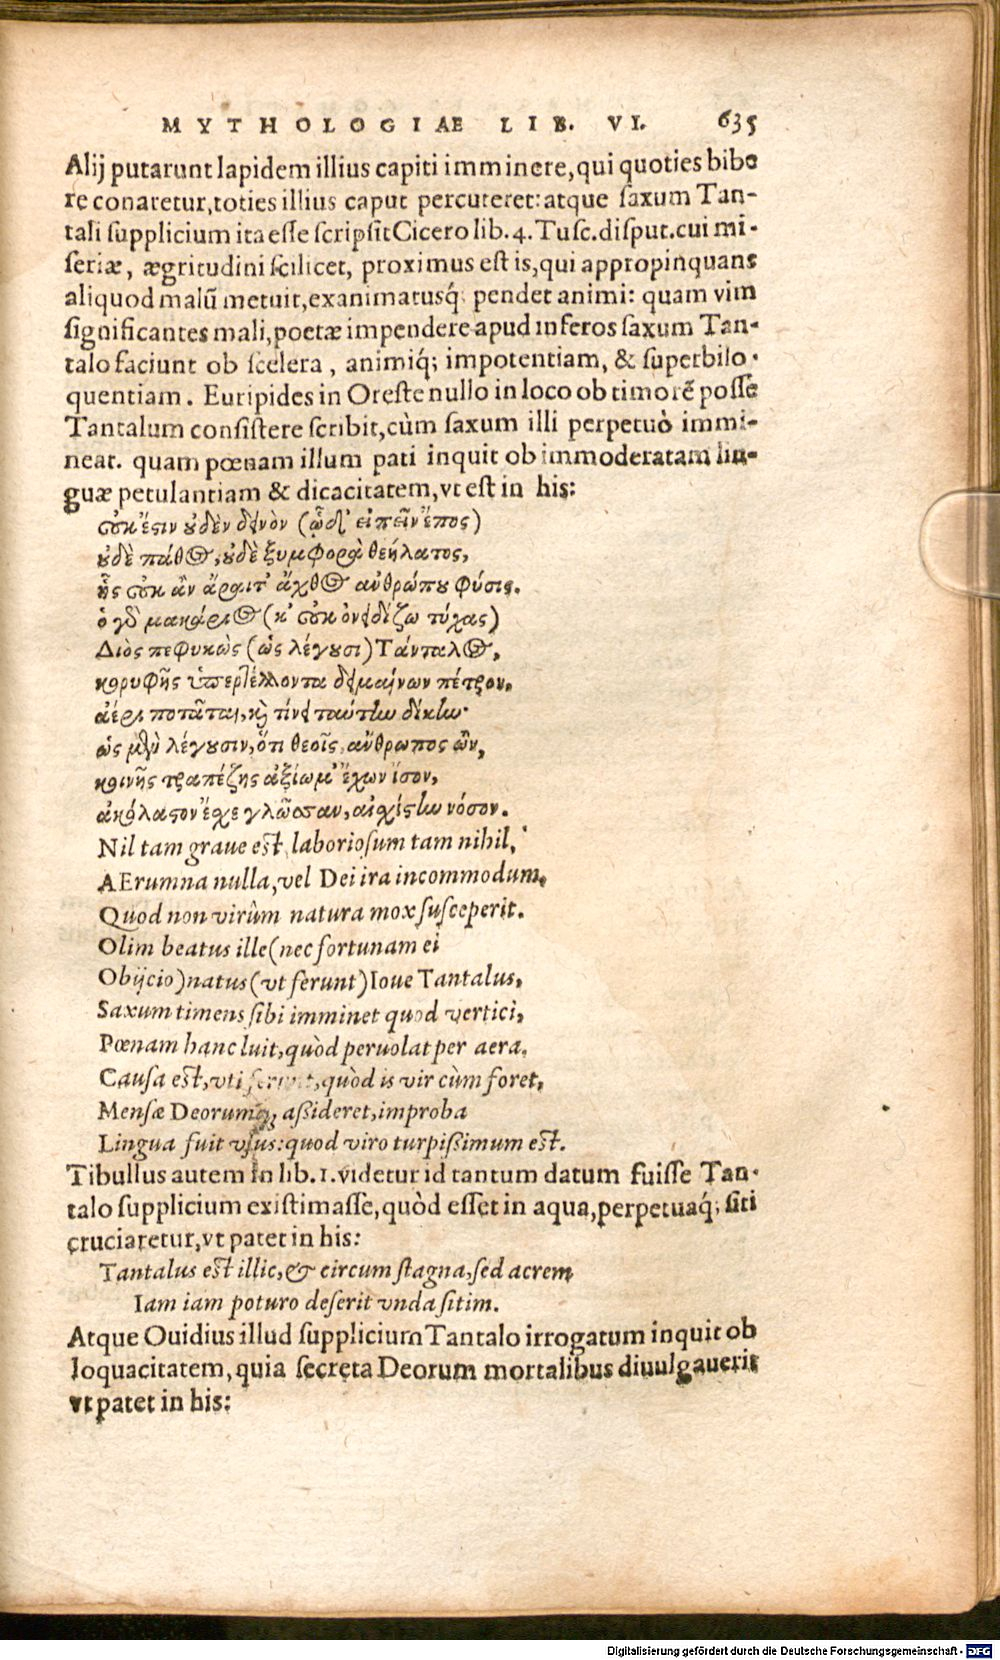 MYTHOLOGIAE LIB. VI. 635
Alij putarunt lapidem illius capiti imminere, qui quoties bibe
re conaretur, toties illius caput percuteret: atque saxum Tan-
tali supplicium ita esse scripsit Cicero lib. 4. Tusc. disput. cui mi-
seriæ, ægritudini scilicet, proximus est is, qui appropinquans
aliquod malũ metuit, exanimatusq́; pendet animi: quam vim
significantes mali, poetæ impendere apud inferos saxum Tan-
talo faciunt ob scelera, animiq́; impotentiam, & superbilo-
quentiam. Euripides in Oreste nullo in loco ob timorẽ posse
Tantalum consistere scribit, cùm saxum illi perpetuò immi-
neat. quam pœnam illum pati inquit ob immoderatam lin-
guæ petulantiam & dicacitatem, vt est in his:
οὐκ ἔστιν οὐδὲν δεινὸν (ὧδ' εἰπεῖν ἔπος)
οὐδὲ πάθος, οὐδὲ ξυμφορὰ θεήλατος,
ἧς οὐκ ἂν ἄραιτ' ἄχθος ἀνθρώπου φύσις.
ὁ γὸ μακάριος (κ' οὐκ ὀνειδίζω τύχας)
Διὸς πεφυκὼς (ὡς λέγουσι) Τάνταλος,
κορυφῆς ὑπερτέλλοντα δειμαίνων πέτρον,
ἀέρι ποτᾶται, καὶ τίνει ταύτην δίκην·
ὡς μὲν λέγουσιν, ὅτι θεοῖς, ἄνθρωπος ὢν,
κοινῆς τραπέζης ἀξίωμ' ἔχων ἴσον,
ἀκόλαστον ἔσχε γλῶσσαν, αἰσχίστην νόσον.
Nil tam graue est, laboriosum tam nihil,
AErumna nulla, vel Dei ira incommodum,
Quod non virûm natura mox susceperit.
Olim beatus ille (nec fortunam ei
Obijcio) natus (vt ferunt) Ioue Tantalus,
Saxum timens sibi imminet quod vertici,
Pœnam hanc luit, quòd peruolat per aera.
Causa est, vti ferunt, quòd is vir cùm foret,
Mensæ Deorumq́; assideret, improba
Lingua fuit vsus: quod viro turpissimum est.
Tibullus autem in lib. 1. videtur id tantum datum fuisse Tan-
talo supplicium existimasse, quòd esset in aqua, perpetuaq́; siti
cruciaretur, vt patet in his:
Tantalus est illic, & circum stagna, sed acrem
Iam iam poturo deserit vnda sitim.
Atque Ouidius illud supplicium Tantalo irrogatum inquit ob
loquacitatem, quia secreta Deorum mortalibus diuulgauerit
vt patet in his:
Digitalisierung gefördert durch die Deutsche Forschungsgemeinschaft - DFG